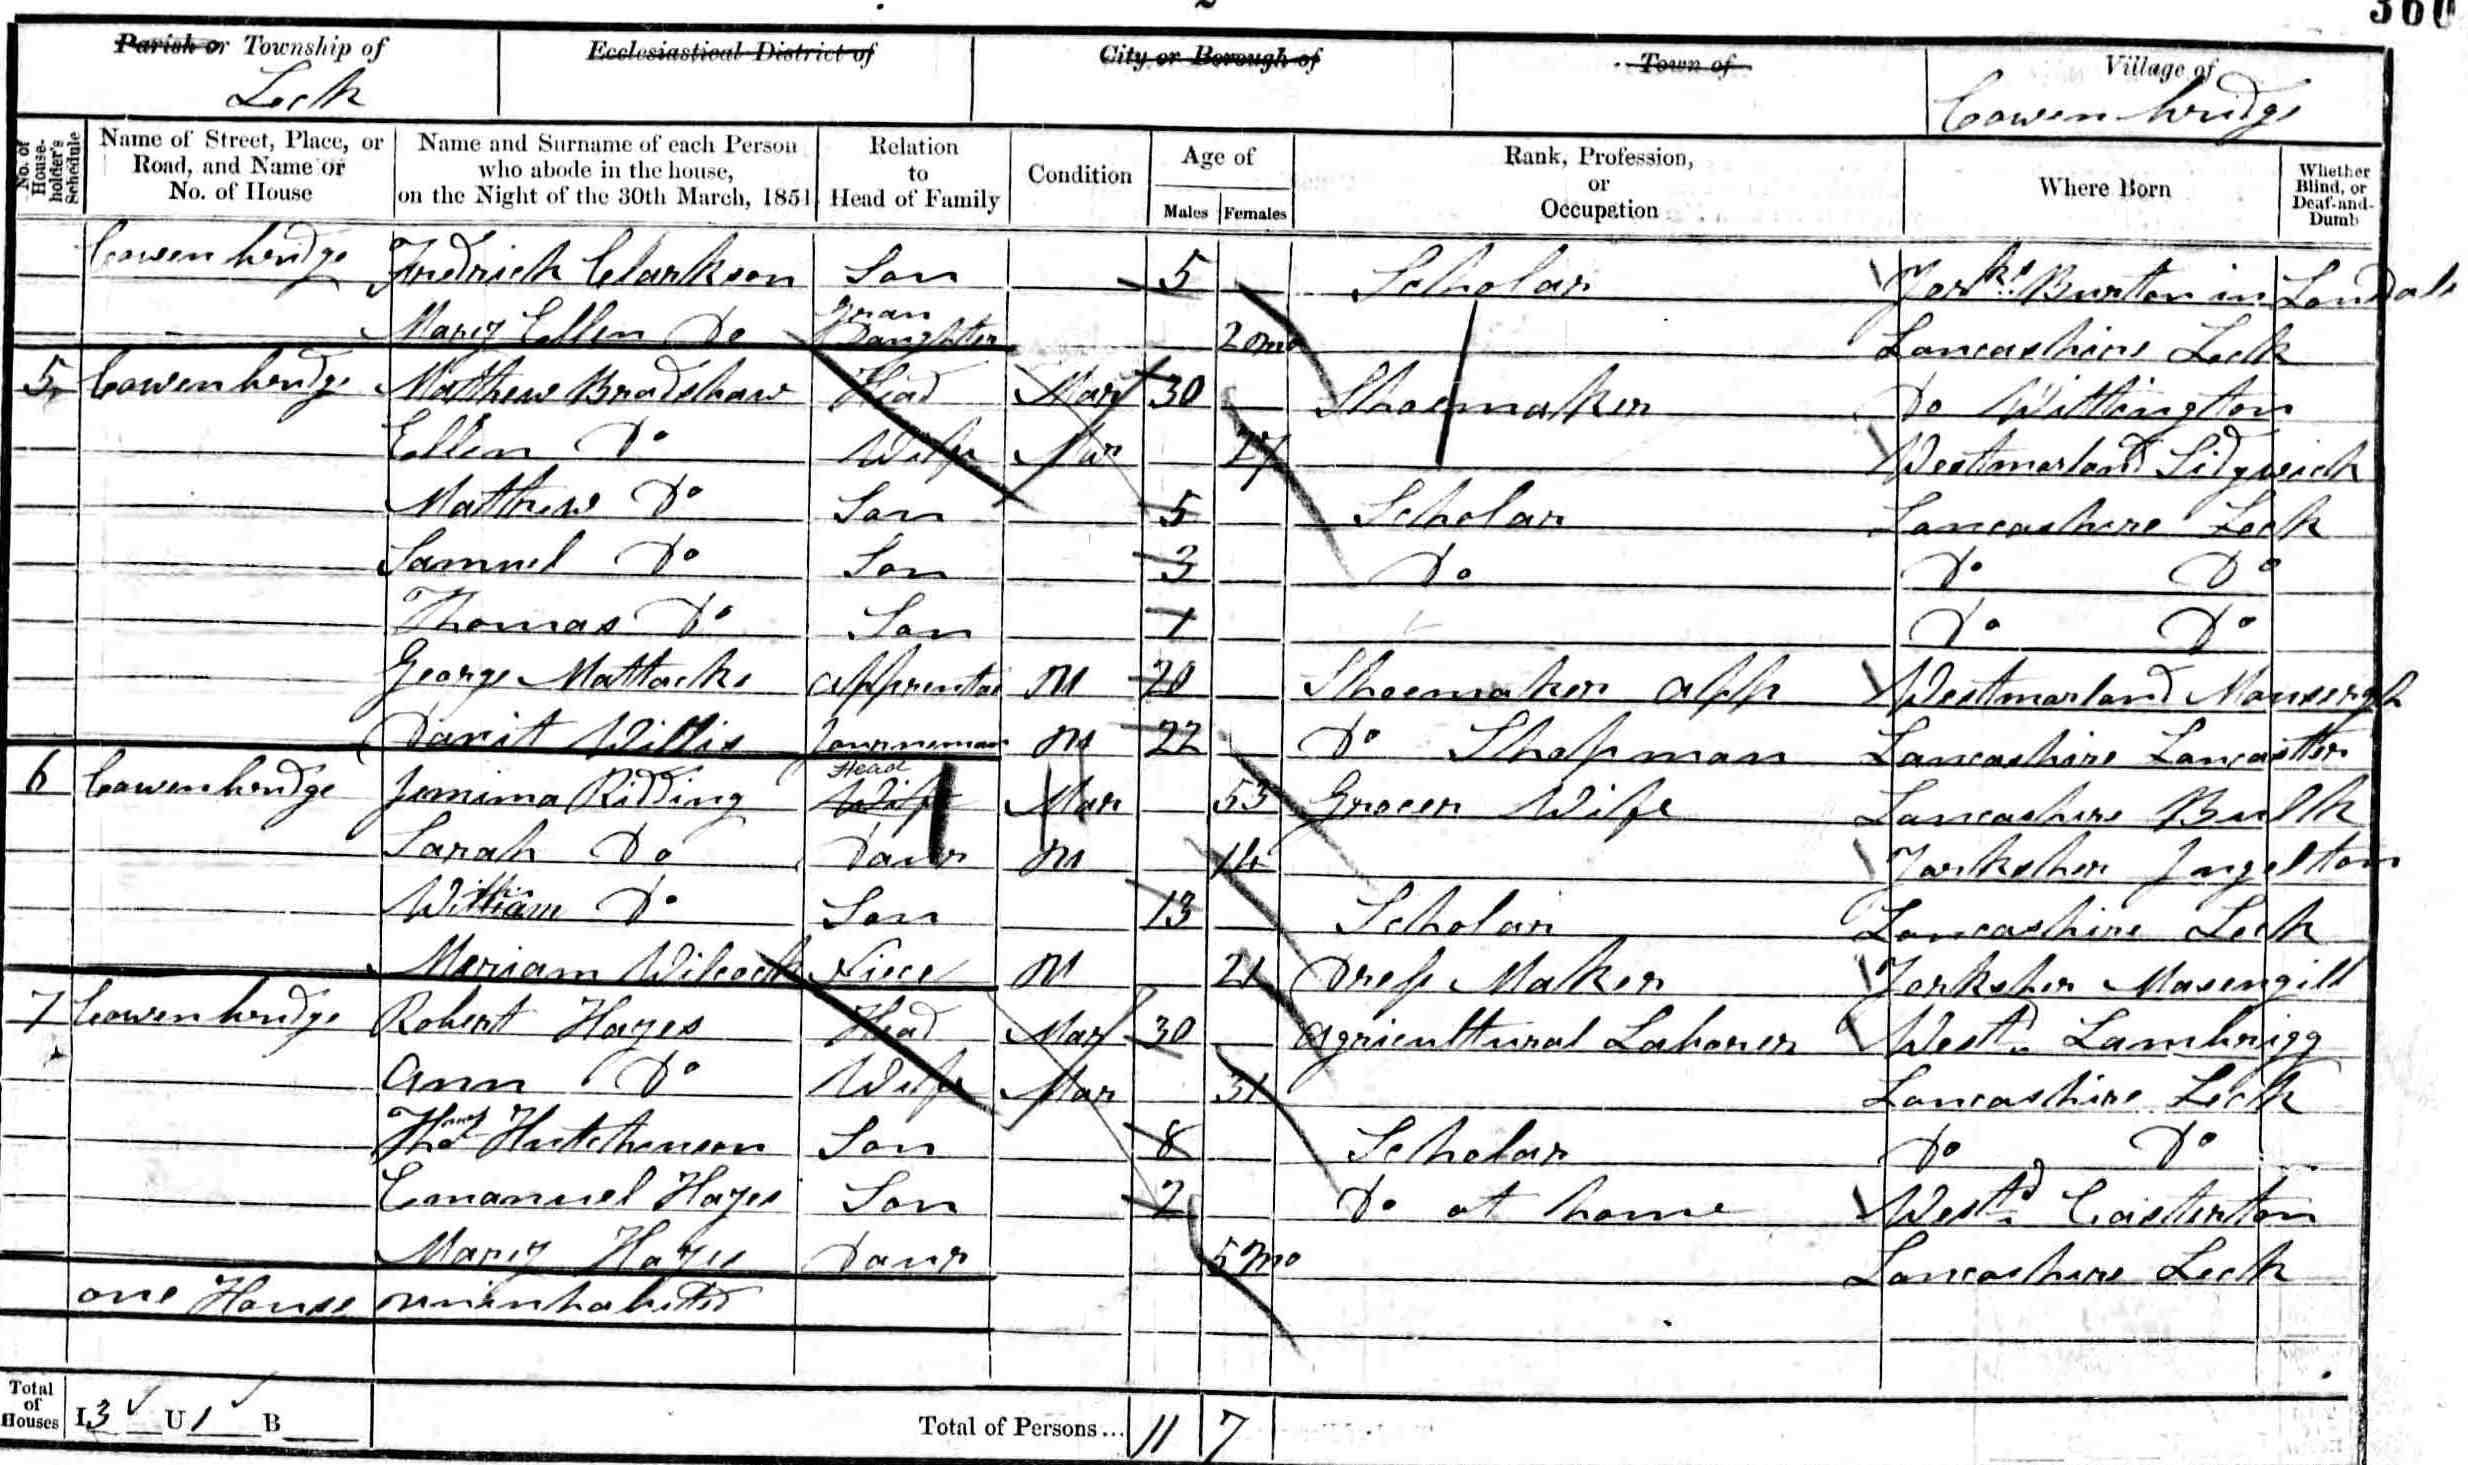 2
360
Parish or Township of
Leck
Ecclesiastical District of
City or Borough of
Town of
Village of
Cowen bridge
No. of House-holder's Schedule
Name of Street, Place, or Road, and Name or No. of House
Name and Surname of each Person who abode in the house, on the Night of the 30th March, 1851
Relation to Head of Family
Condition
Age of
Males Females
Rank, Profession, or Occupation
Where Born
Whether Blind, or Deaf-and-Dumb
Cowen bridge Fredrick Clarkson Son 5 Scholar Yorks. Burton in Lonsdale
Mary Ellen Do Gran Daughter 2 mo Lancashire Leck
5 Cowen bridge Matthew Bradshaw Head Mar 30 Shoemaker Do Wittington
Ellen Do Wife Mar 27 Westmorland Sidgwick
Matthew Do Son 5 Scholar Lancashire Leck
Samuel Do Son 3 Do Do Do
Thomas Do Son 1 Do Do
George Mattacks Apprentice 20 Shoemaker app Westmorland Mansergh
Davit Willis Journeman 22 Do Shopman Lancashire Lancaster
6 Cowen bridge Jemima Ridding Head Wife Mar 53 Grocer Wife Lancashire Bulk
Sarah Do Daur 14 Yorksher Ingelton
William Do Son 13 Scholar Lancashire Leck
Meriam Wilcock Niece 21 Dress Maker Yorksher Masengill
7 Cowen bridge Robert Hayes Head Mar 30 Agricultural Laborer Westd. Lambrigg
Ann Do Wife Mar 31 Lancashire Leck
Thos Hutchenson Son 8 Scholar Do Do
Emanuel Hayes Son 2 Do at home Westd. Casterton
Mary Hayes Daur 5 mo Lancashire Leck
one House uninhabited
Total of Houses I 3 U 1 B
Total of Persons... 11 7